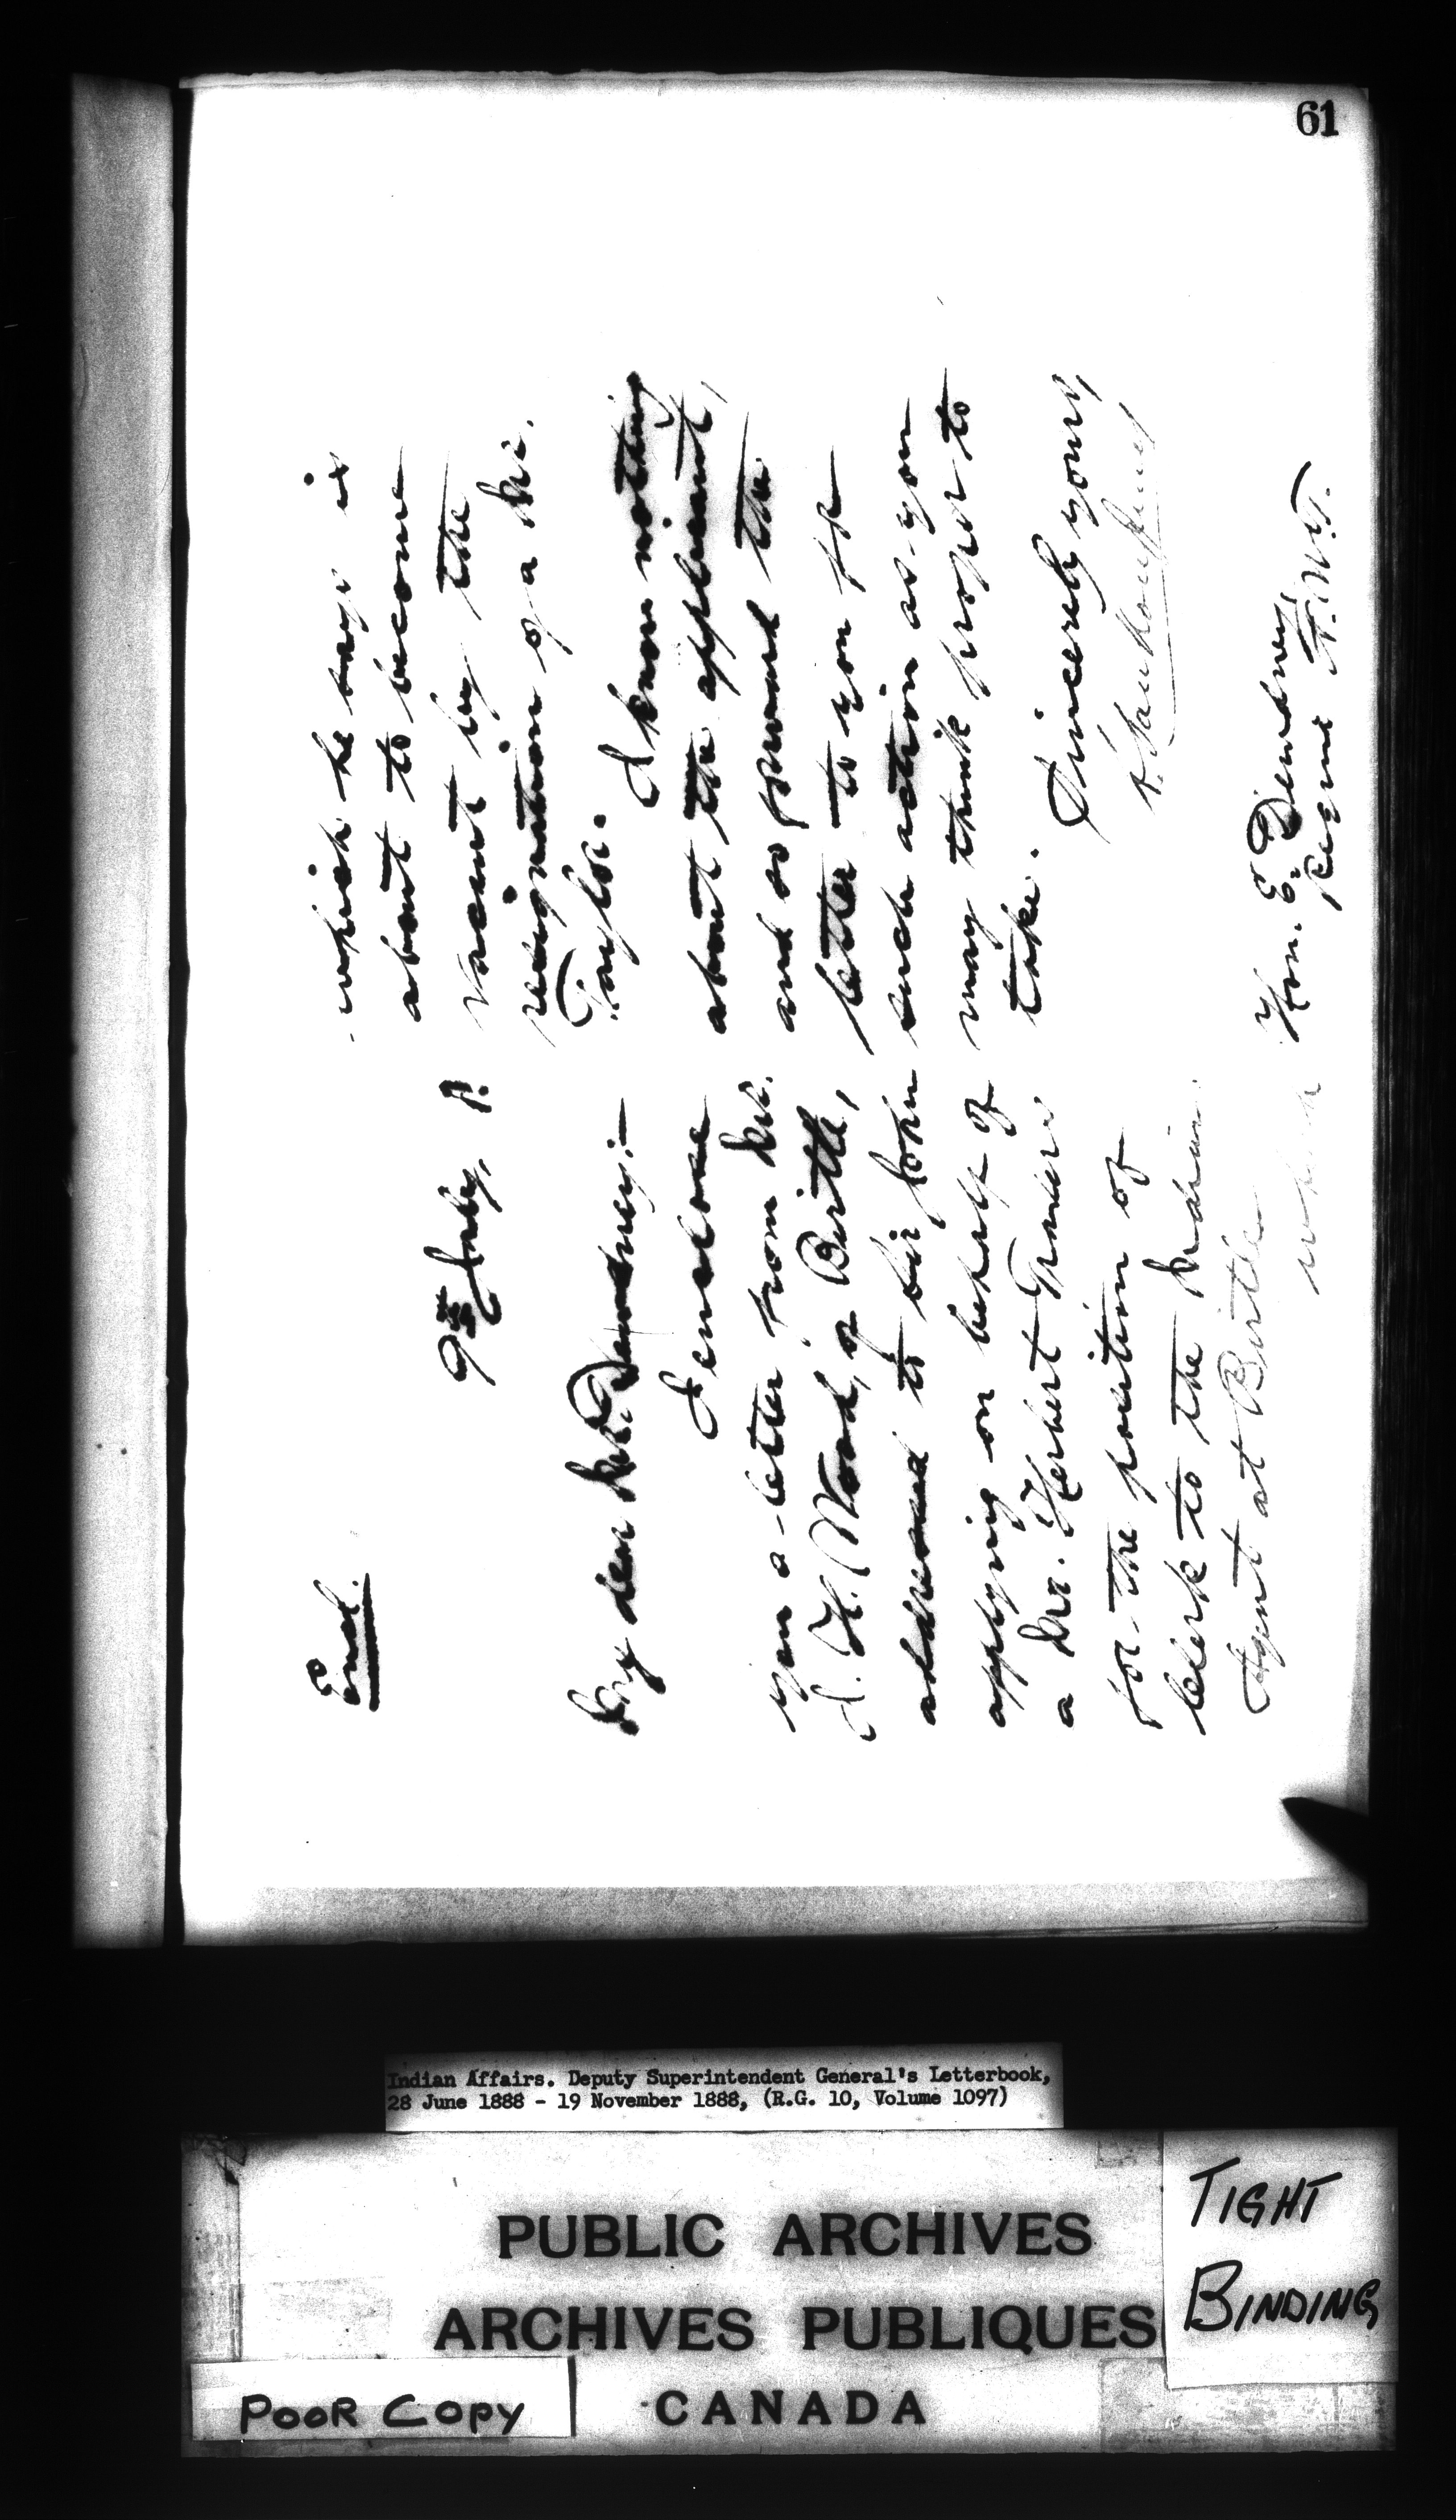 61
Encl.
9th July, 8.
My dear Mr. Dewdney:—
I enclose
you a letter from Mr.
J. H. Wood, of Birtle,
addressed to Sir John
applying on behalf of
a Mr. Herbert
for the position of
Clerk to the Indian
Agent at Birtle
which
which he says is
about to become
vacant by the
resignation of a Mr.
Taylor.
I know nothing
about the applicant,
and so forward the
letter to you for
such action as you
may think proper to
take.
Sincerely yours,
Hon. E. Dewdney,
Regina N.W.T.
Indian Affairs. Deputy Superintendent General's Letterbook,
28 June 1888 - 19 November 1888, (R.G. 10, Volume 1097)
PUBLIC ARCHIVES
ARCHIVES PUBLIQUES
CANADA
TIGHT
BINDING
POOR COPY